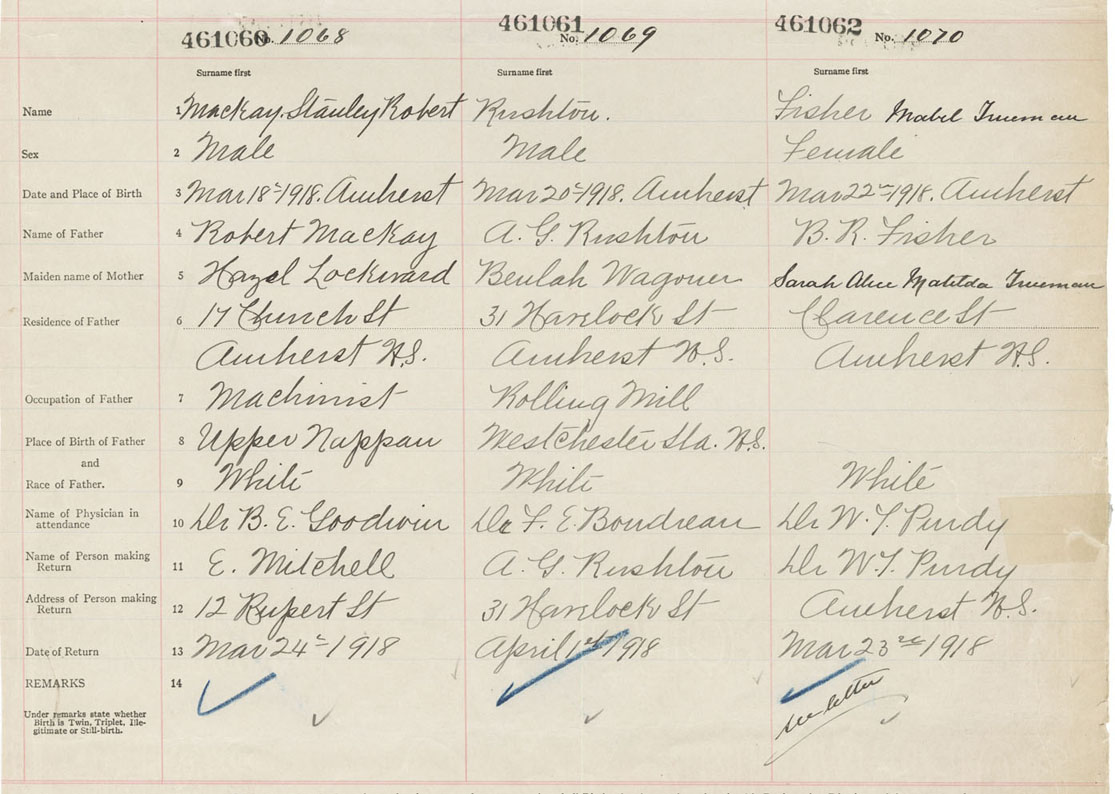 461060 No. 1068 461061 No. 1069 461062 No. 1070
Surname first Surname first Surname first
Name 1 Mackay. Stanley Robert Rushton. Fisher Mabel Trueman
Sex 2 Male Male Female
Date and Place of Birth 3 Mar 18th 1918. Amherst Mar 20th 1918. Amherst Mar 22nd 1918. Amherst
Name of Father 4 Robert Mackay A. G. Rushton B. R. Fisher
Maiden name of Mother 5 Hazel Lockward Beulah Wagoner Sarah Alice Matilda Trueman
Residence of Father 6 17 Church St 31 Havelock St Clarence St
Amherst N.S. Amherst N.S. Amherst N.S.
Occupation of Father 7 Machinist Rolling Mill
Place of Birth of Father 8 Upper Nappan Westchester Sta. N.S.
and
Race of Father. 9 White White White
Name of Physician in
attendance 10 Dr B. E. Goodwin Dr F. E. Boudreau Dr W. T. Purdy
Name of Person making
Return 11 E. Mitchell A. G. Rushton Dr W. T. Purdy
Address of Person making
Return 12 12 Rupert St 31 Havelock St Amherst N.S.
Date of Return 13 Mar 24th 1918 April 1st 1918 Mar 23rd 1918
REMARKS 14 see letter
Under remarks state whether
Birth is Twin, Triplet, Ille-
gitimate or Still-birth.